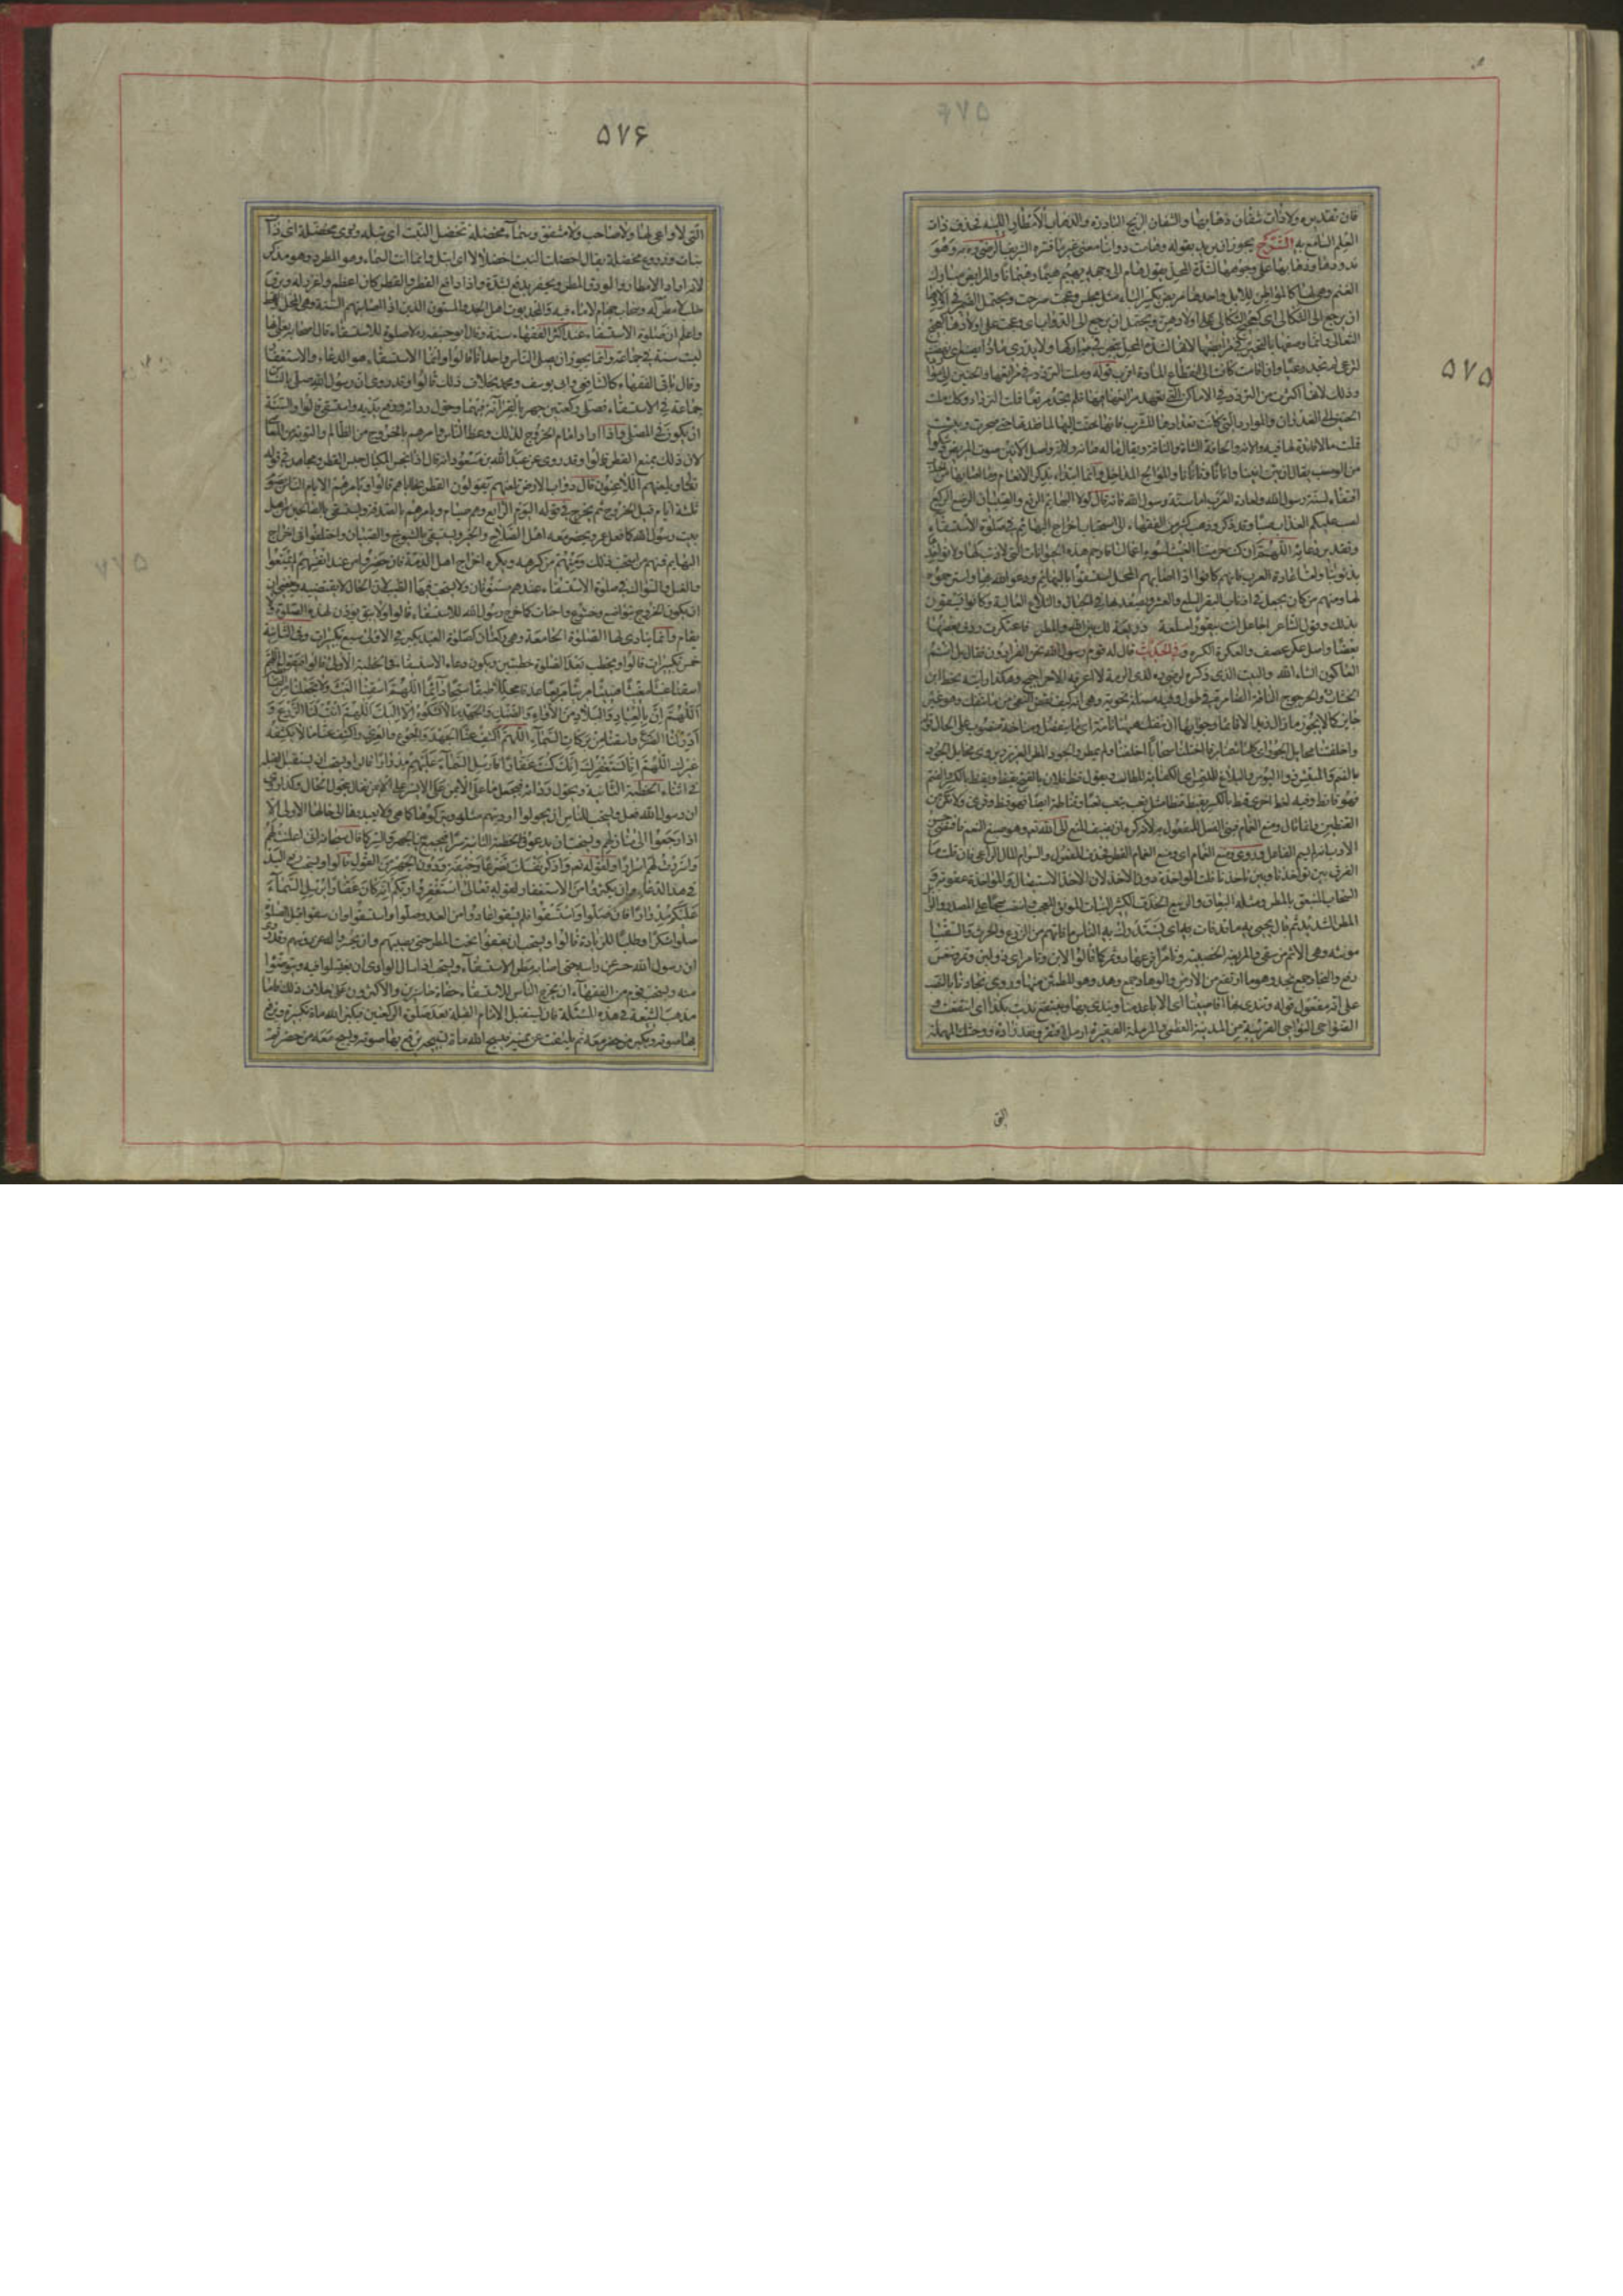 ۵۷۵
۵۷۵
فان تقديره ولا ذات شفان ذهابها والشفان الريح الباردة والذهاب الامطار اللينة فحذف ذات
العلم السامع به الشرح يجوز ان يريد بقوله وهامت دوابنا معنى غير ما فسره الشريف الرضى ره به وهو
ندودها وذهابها على وجوهها لشدة المحل يقول هام على وجهه يهيم هيما وهيمانا والمرابض مبارك
الغنم وهى لها كالمواطن للابل واحدها مربض بكسر الباء مثل مجلس وعجت صرخت ويحتمل الضمير فى اولادها
ان يرجع الى الثكالى اى كعجيج الثكالى على اولادهن ويحتمل ان يرجع الى الدواب اى وعجت على اولادها كعجيج
الثكالى وانما وصفها بالتحير فى مرابضها لانها لشدة المحل تتحير فى مباركها ولا تدرى ماذا تصنع ان نهضت
لترعى لم تجد رعيا وان اقامت كانت الى انقطاع المادة اقرب قوله وملت التردد فى مراتعها والحنين الى مواردها
وذلك لانها اكثرت من التردد فى الاماكن التى كانت تعهد مراتعها فيها فلم تجد مرتعا فملت الترداد وكذلك ملت
الحنين الى الغدران والموارد التى كانت تعتادها للشرب فانها حنت اليها لما فقدتها حتى ضجرت ويئست
فملت مما لا فائدة لها فيه والانة والحانة الشاة والناقة ويقال ما له حانة ولا انة واصل الانين صوت المريض وشكواه
من الوصب يقال ان يئن انينا وانانا وتأنانا والموالج المداخل وانما ابتداء بذكر الانعام وما اصابها من الجدب
اقتفاء لسنة رسول الله ولعادة العرب اما سنة رسول الله فانه قال لولا البهائم الرتع والصبيان الرضع والشيوخ الركع
لصب عليكم العذاب صبا وقد ذكر وذهب كثير من الفقهاء الى استحباب اخراج البهائم فى صلوة الاستسقاء
وتقدير دعائه اللهم ان كنت حرمتنا الغيث لسوء اعمالنا فارحم هذه الحيوانات التى لا ذنب لها ولا تؤاخذها
بذنوبنا واما عادة العرب فانهم كانوا اذا اصابهم المحل استسقوا بالبهائم ودعوا الله بها واسترحموه
لها ومنهم من كان يجعل فى اذناب البقر السلع والعشر ويصعد بها فى الجبال والتلاع العالية وكانوا يسقون
بذلك وقول الشاعر اجاعل انت بيقورا مسلعة ذريعة لك بين الله والمطر فاعتكرت ردف بعضها
بعضا واصل عكر عطف والعكرة الكرة وفى الحديث قال له قوم يا رسول الله نحن الفرارون فقال بل انتم
العكارون انشاء الله والبيت الذى ذكره الرضى ره لذى الرمة لا اعرفه الا حراجيج وهكذا رايته بخط ابن
الخشاب والحرجوج الناقة الضامرة فى طول وفيه مسئلة نحوية وهى انه كيف نقض النفى من ما تنفك وهو غير
جائز كما لا يجوز ما زال زيد الا قائما وجوابها ان تنفك هيهنا تامة اى ما تنفصل ومناخة منصوب على الحال قوله
واخلفتنا مخايل الجود اى كلما شمنا برقا واختلنا سحابا اخلفنا ولم يمطر والجود المطر الغزير ويروى مخايل الجود
بالضم والمبتئس ذو البؤس والبلاغ للملتمس اى الكفاية للطالب وتقول قنط فلان بالفتح يقنط ويقنط بالكسر والضم
فهو قانط وفيه لغة اخرى قنط بالكسر يقنط قنطا مثل تعب يتعب تعبا وقناطة ايضا فهو قنط وقرئ ولا تكن من
القنطين وانما قال ومنع الغمام فبنى الفعل للمفعول به لانه كره ان يضيف المنع الى الله تعالى وهو منبع النعم فاقتضى حسن
الادب انه لم يسم الفاعل وروى ومنع الغمام اى ومنع الغمام القطر فحذف المفعول والسوام المال الراعى فان قلت ما
الفرق بين تؤاخذنا وبين تاخذنا قلت المؤاخذة دون الاخذ لان الاخذ الاستيصال والمؤاخذة عقوبة وان قلت
السحاب المنبعق بالمطر ومثله البعاق والربيع المغدق الكثير النبات المونق المعجب وانتصب سحا على المصدر والوابل
المطر الشديد ثم قال تحيى به ما قد مات وترد به ما قد فات اى يستدرك به الناس ما فاتهم من الزرع والحرث والسقيا
مؤنثة وهى الاسم من سقى والمريعة الخصيبة وثامرا فرعها ذو ثمر كما قالوا لابن وتامر اى ذو لبن وتمر وتنعش
ترفع والنجاد جمع نجد وهو ما ارتفع من الارض والوهاد جمع وهد وهو المطمئن منها وروى نجادنا بالنصب
على انه مفعول قوله وتندى بها اقاصينا اى الاباعد منا ويندى بها وينتفع نديت بكذا اى انتفعت و
الضواحى النواحى القريبة من المدينة العظمى والمرملة الفقيرة ارمل افتقر ونفد زاده ووحشك المهملة
التى
۵۷۶
التى لا راعى لها ولا صاحب ولا مشفق وسماء مخضلة تخضل النبت اى تبله وروى مخضلة اى ذات
نبات وزروع مخضلة يقال اخضل النبت اخضلالا اى ابتل وانما انث السماء وهو المطر وهو مذكر
لانه اراد الامطار والودق المطر ويحفز يدفع بشدة واذا دفع القطر القطر كان اعظم واغزر له وبرق
خلب لا مطر معه وسحاب جهام لا ماء فيه والمجدبون اهل الجدب والمسنتون الذين اصابتهم السنة وهى المحل والقحط
واعلم ان صلوة الاستسقاء عند اكثر الفقهاء سنة وقال ابو حنيفة لا صلوة للاستسقاء قال اصحابه يعنى انها
ليست سنة فى جماعة وانما يجوز ان يصلى الناس وحدانا قالوا وانما الاستسقاء هو الدعاء والاستغفار
وقال باقى الفقهاء كالشافعى وابى يوسف ومحمد بخلاف ذلك قالوا وقد روى ان رسول الله صلى بالناس
جماعة فى الاستسقاء فصلى ركعتين جهر بالقراءة فيهما وحول رداءه ورفع يديه واستسقى قالوا والسنة
ان يكون فى المصلى واذا اراد الامام الخروج لذلك وعظ الناس وامرهم بالخروج من المظالم والتوبة من المعاصى
لان ذلك يمنع القطر قالوا وقد روى عن عبد الله بن مسعود انه قال اذا بخس المكيال حبس القطر ومجاهد فى قوله
تعالى ويلعنهم اللاعنون قال دواب الارض تلعنهم يقولون القطر بخطاياهم قالوا ويامرهم الامام بصوم
ثلثة ايام قبل الخروج ثم يخرج فى اليوم الرابع وهم صيام ويامرهم بالصدقة ويستسقى بالصالحين من اهل
بيت رسول الله كما فعل عمر ويحضر معه اهل الصلاح والخير ويستسقى بالشيوخ والصبيان واختلفوا فى اخراج
البهائم فمنهم من استحب ذلك ومنهم من كرهه ويكره اخراج اهل الذمة فان حضروا من عند انفسهم لم يمنعوا
والغسل والسواك فى صلوة الاستسقاء عندهم مسنونان ولا يستحب فيهما التطيب لان الحال لا يقتضيه وينبغى ان
يكون الخروج بتواضع وخشوع واخبات كما خرج رسول الله للاستسقاء قالوا ولا يؤذن لهذه الصلوة ولا
يقام وانما ينادى لها الصلوة الجامعة وهى ركعتان كصلوة العيد يكبر فى الاولى سبع تكبيرات وفى الثانية
خمس تكبيرات قالوا ويخطب بعد الصلوة خطبتين ويكون دعاء الاستسقاء فى الخطبة الاولى قالوا فيقول اللهم
اسقنا غيثا مغيثا هنيئا مريئا مريعا غدقا مجللا طبقا سحا دائما اللهم اسقنا الغيث ولا تجعلنا من القانطين
اللهم ان بالعباد والبلاد من اللاواء والضنك والجهد ما لا نشكوه الا اليك اللهم انبت لنا الزرع و
ادر لنا الضرع واسقنا من بركات السماء اللهم اكشف عنا الجهد والجوع والعرى واكشف عنا ما لا يكشفه
غيرك اللهم انا نستغفرك انك كنت غفارا فارسل السماء علينا مدرارا قالوا ويستحب ان يستقبل القبلة
فى اثناء الخطبة الثانية ويحول رداءه فيجعل ما على الايمن على الايسر وما على الايسر على الايمن تفالا بتحول الحال وكذا روى
ان رسول الله فعل ويستحب للناس ان يحولوا ارديتهم مثله ويتركوها كما هى ولا يعيدوها الى حالها الاولى الا
اذا رجعوا الى منازلهم ويستحب ان يدعو فى الخطبة الثانية سرا فيجمع بين الجهر والسر كما قال سبحانه انى اعلنت لهم
واسررت لهم اسرارا وكقوله تعالى واذكر ربك فى نفسك تضرعا وخيفة ودون الجهر من القول قالوا ويستحب رفع اليد
فى هذا الدعاء وان يكثروا من الاستغفار لقوله تعالى استغفروا ربكم انه كان غفارا يرسل السماء
عليكم مدرارا فان صلوا واستسقوا فلم يسقوا عادوا من الغد وصلوا واستسقوا وان سقوا قبل الصلوة
صلوا شكرا وطلبا للزيادة قالوا ويستحب ان يقفوا تحت المطر حتى يصيبهم وان يحسروا له عن رؤسهم وقد روى
ان رسول الله حسر عن راسه حتى اصابه مطر الاستسقاء ويستحب اذا سال الوادى ان يغتسلوا فيه ويتوضوا
منه وقد استحب قوم من الفقهاء ان يخرج الناس للاستسقاء حفاة حاسرين والاكثرون على خلاف ذلك فاما
مذهب الشيعة فى هذه المسئلة فان يستقبل الامام القبلة بعد صلوة الركعتين فيكبر الله مائة تكبيرة ويرفع
بها صوته ويكبر من حضر معه ثم يلتفت عن يمينه فيسبح الله مائة تسبيحة يرفع بها صوته ويسبح معه من حضر ثم